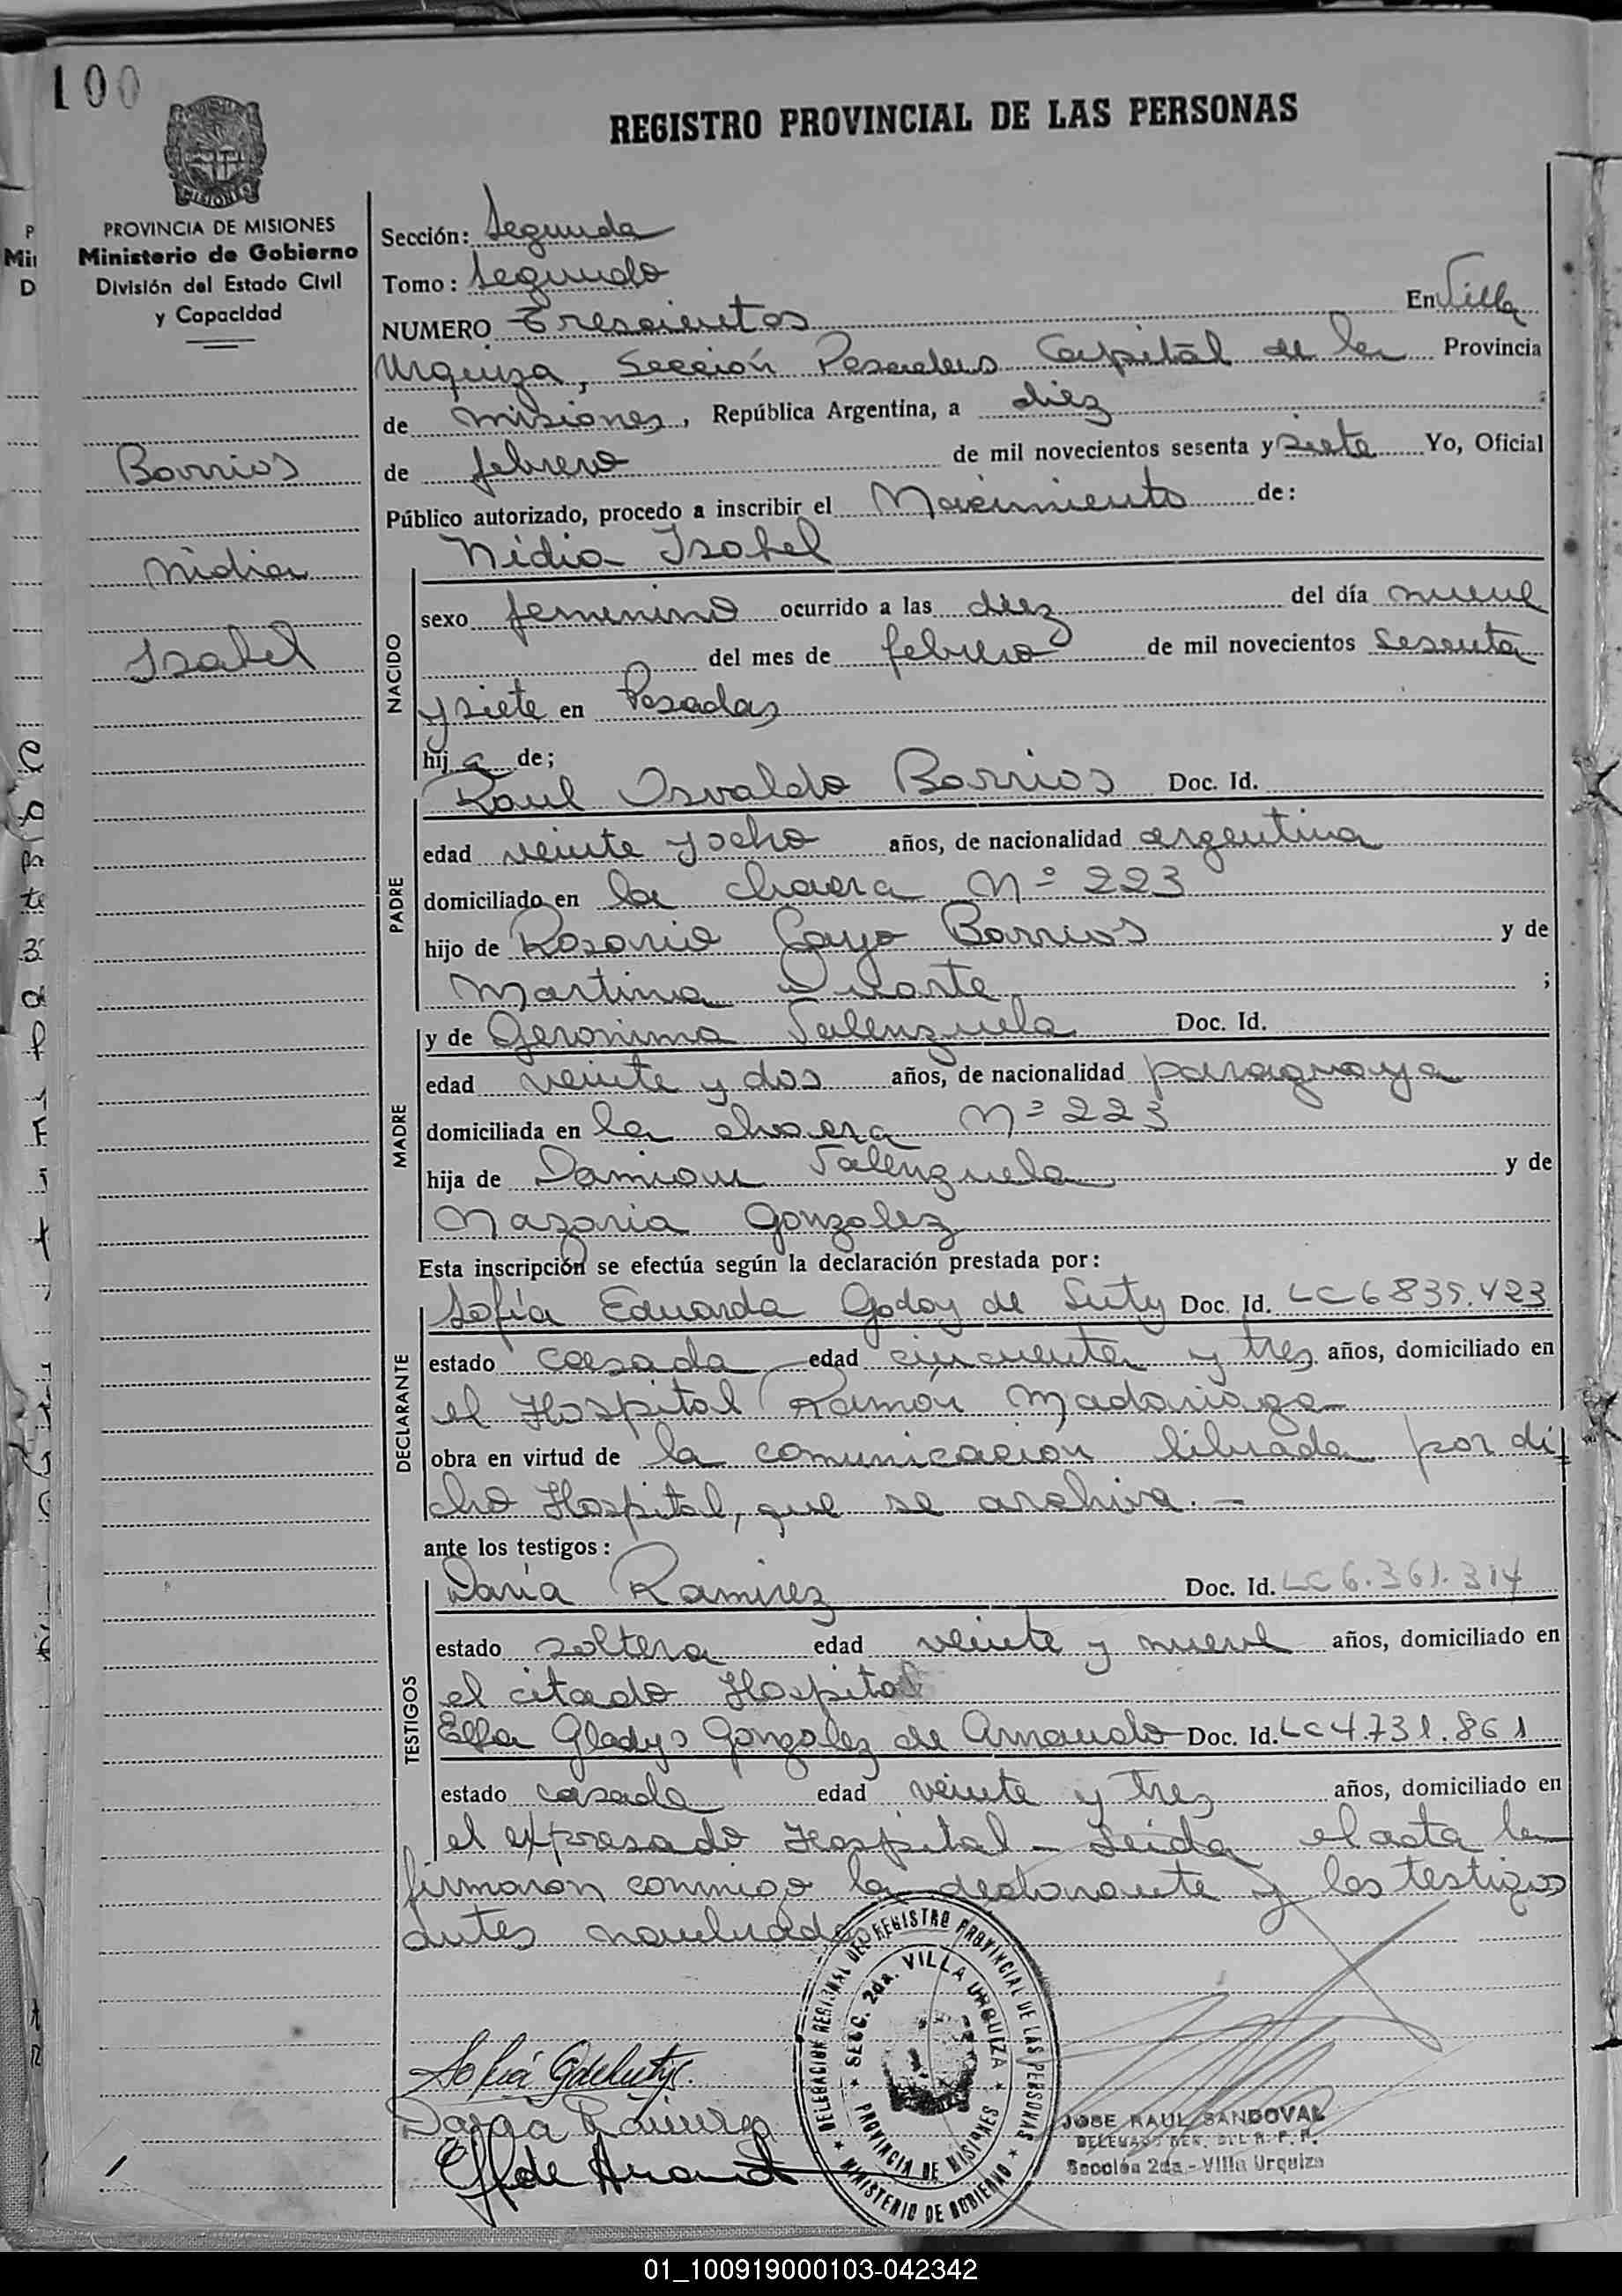 100
REGISTRO PROVINCIAL DE LAS PERSONAS
MISIONES
PROVINCIA DE MISIONES
Ministerio de Gobierno
División del Estado Civil
y Capacidad
Barrios
Nidia
Isabel
Sección: Segunda
Tomo: Segundo
NUMERO Trescientos En Villa
Urquiza, Sección Posadas Capital de la Provincia
de Misiones, República Argentina, a diez
de febrero de mil novecientos sesenta y siete Yo, Oficial
Público autorizado, procedo a inscribir el Nacimiento de:
Nidia Isabel
NACIDO
sexo femenino ocurrido a las diez del día nueve
del mes de febrero de mil novecientos sesenta
y siete en Posadas
hij a de;
PADRE
Raul Osvaldo Barrios Doc. Id.
edad veinte y ocho años, de nacionalidad argentina
domiciliado en la chacra Nº 223
hijo de Rosario Gayo Barrios y de
Martina Duarte ;
MADRE
y de Geronima Valenzuela Doc. Id.
edad veinte y dos años, de nacionalidad paraguaya
domiciliada en la chacra Nº 223
hija de Damian Valenzuela y de
Nazaria Gonzalez
Esta inscripción se efectúa según la declaración prestada por:
DECLARANTE
Sofía Eduarda Godoy de Suty Doc. Id. LC 6835.423
estado casada edad cincuenta y tres años, domiciliado en
el Hospital Ramón Madariaga
obra en virtud de la comunicación librada por di
cho Hospital, que se archiva. -
ante los testigos:
TESTIGOS
Daría Ramirez Doc. Id. LC 6.361.314
estado soltera edad veinte y nueve años, domiciliado en
el citado Hospital
Elfa Gladys Gonzalez de Arnaudo Doc. Id. LC 4.731.861
estado casada edad veinte y tres años, domiciliado en
el expresado Hospital - Leida el acta la
firmaron conmigo la declarante y los testigos
antes nombrados
DELEGACION REGIONAL DEL REGISTRO PROVINCIAL DE LAS PERSONAS
SECC. 2da. VILLA URQUIZA
PROVINCIA DE MISIONES
MINISTERIO DE GOBIERNO
Daría Ramirez
JOSE RAUL SANDOVAL
DELEGADO REG. DEL R. P. P.
Sección 2da - Villa Urquiza
01_100919000103-042342